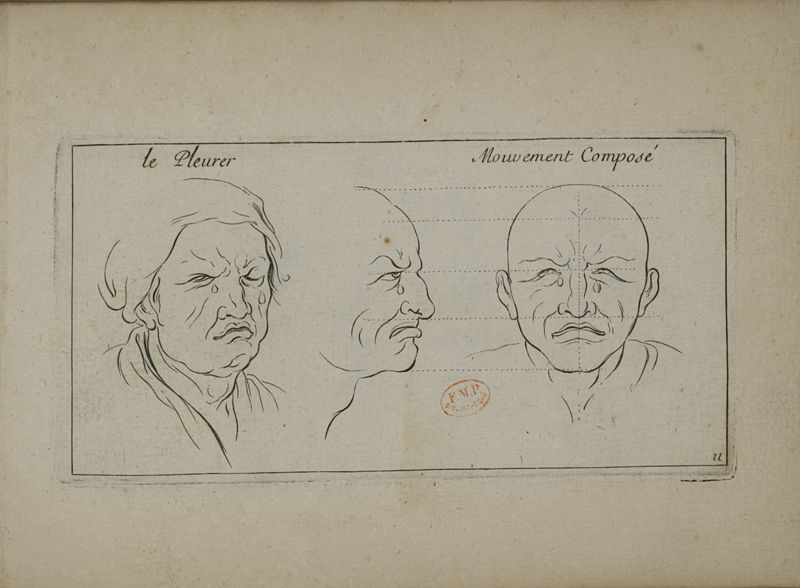 le Pleurer
Mouvement Composé
F.M.P